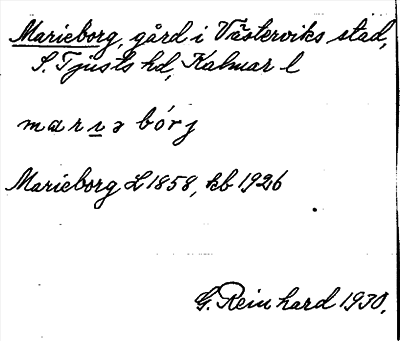 Marieborg, gård i Västerviks stad,
S. Tjusts hd, Kalmar l
marıɘ bórj
Marieborg L 1858, kb 1926
G. Reinhard 1930.